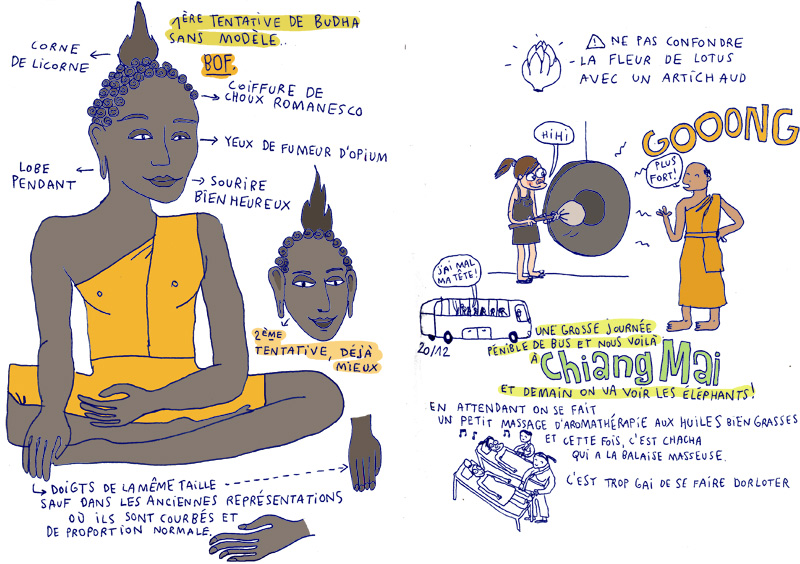 1ÈRE TENTATIVE DE BUDHA
SANS MODÈLE..
BOF.
CORNE
DE LICORNE
COIFFURE DE
CHOUX ROMANESCO
YEUX DE FUMEUR D'OPIUM
LOBE
PENDANT
SOURIRE
BIENHEUREUX
2ÈME
TENTATIVE, DÉJÀ
MIEUX
DOIGTS DE LA MÊME TAILLE
SAUF DANS LES ANCIENNES REPRÉSENTATIONS
OÙ ILS SONT COURBÉS ET
DE PROPORTION NORMALE.
NE PAS CONFONDRE
LA FLEUR DE LOTUS
AVEC UN ARTICHAUD
HIHI
GOOONG
PLUS
FORT!
J'AI MAL
MA TÊTE!
20/12
UNE GROSSE JOURNÉE
PÉNIBLE DE BUS ET NOUS VOILÀ
À Chiang Mai
ET DEMAIN ON VA VOIR LES ÉLÉPHANTS!
EN ATTENDANT ON SE FAIT
UN PETIT MASSAGE D'AROMATHÉRAPIE AUX HUILES BIEN GRASSES
ET CETTE FOIS, C'EST CHACHA
QUI A LA BALAISE MASSEUSE.
C'EST TROP GAI DE SE FAIRE DORLOTER